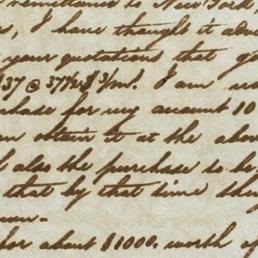 remittance to New York,
s, I have thought it adv
your quotations that g
37 @ 37½ $ 3/m/. I am
chase for my account 10
an obtain it at the abo
d also the purchase to be
that by that time the
for about $1000. worth of